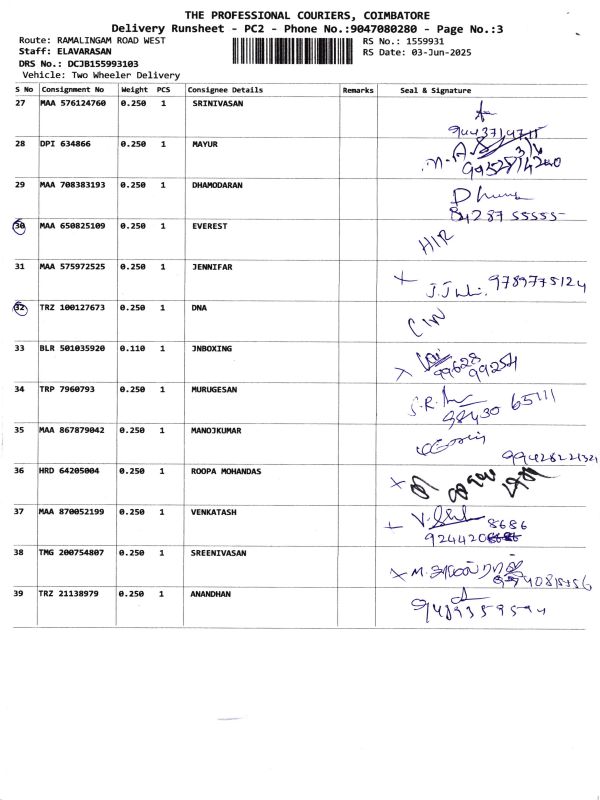 THE PROFESSIONAL COURIERS, COIMBATORE
Delivery Runsheet - PC2 - Phone No.:9047080280 - Page No.:3
Route: RAMALINGAM ROAD WEST RS No.: 1559931
Staff: ELAVARASAN RS Date: 03-Jun-2025
DRS No.: DCJB155993103
Vehicle: Two Wheeler Delivery
S No Consignment No Weight PCS Consignee Details Remarks Seal & Signature
27 MAA 576124760 0.250 1 SRINIVASAN
28 DPI 634866 0.250 1 MAYUR
29 MAA 708383193 0.250 1 DHAMODARAN
84287 55555
30 MAA 650825109 0.250 1 EVEREST
31 MAA 575972525 0.250 1 JENNIFAR 9789775124
32 TRZ 100127673 0.250 1 DNA
33 BLR 501035920 0.110 1 JNBOXING
99628 99254
34 TRP 7960793 0.250 1 MURUGESAN
98430 65111
35 MAA 867879042 0.250 1 MANOJKUMAR
36 HRD 64205004 0.250 1 ROOPA MOHANDAS
37 MAA 870052199 0.250 1 VENKATASH
8686
924420
38 TMG 200754807 0.250 1 SREENIVASAN
39 TRZ 21138979 0.250 1 ANANDHAN